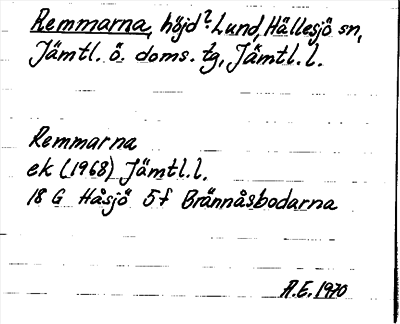 Remmarna, höjd? Lund, Hällesjö sn,
Jämtl. ö. doms. tg, Jämtl. l.
Remmarna
ek (1968) Jämtl. l.
18 G Håsjö 5f Brännåsbodarna
A.E. 1970